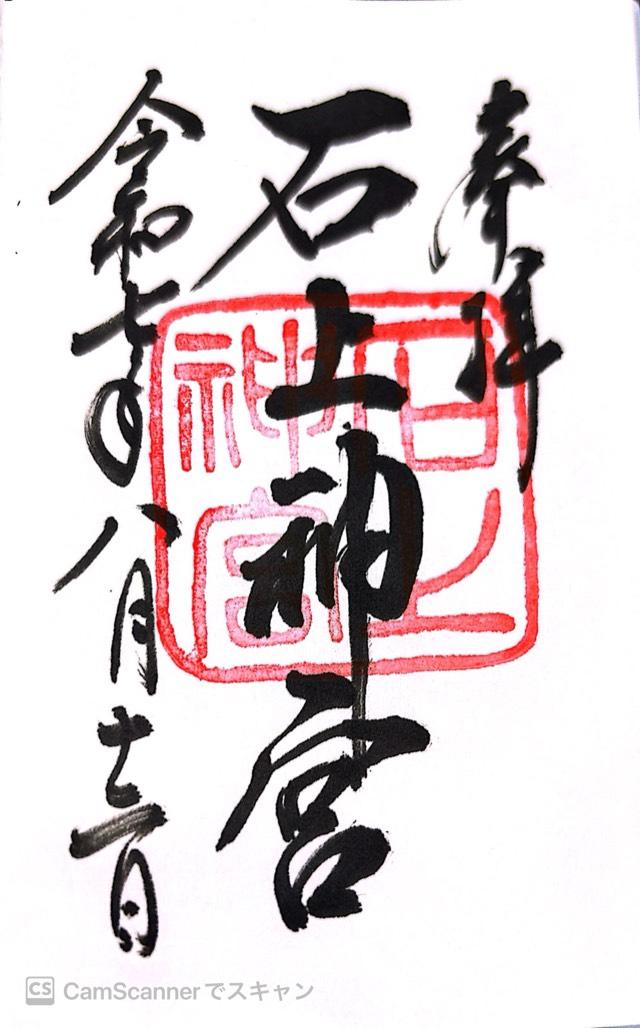 奉拝
石上神宮
令和七年八月十二日
石上
神宮
CS CamScannerでスキャン